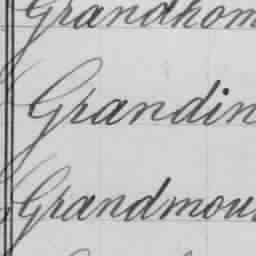 Grandhom
Grandin
Grandmou